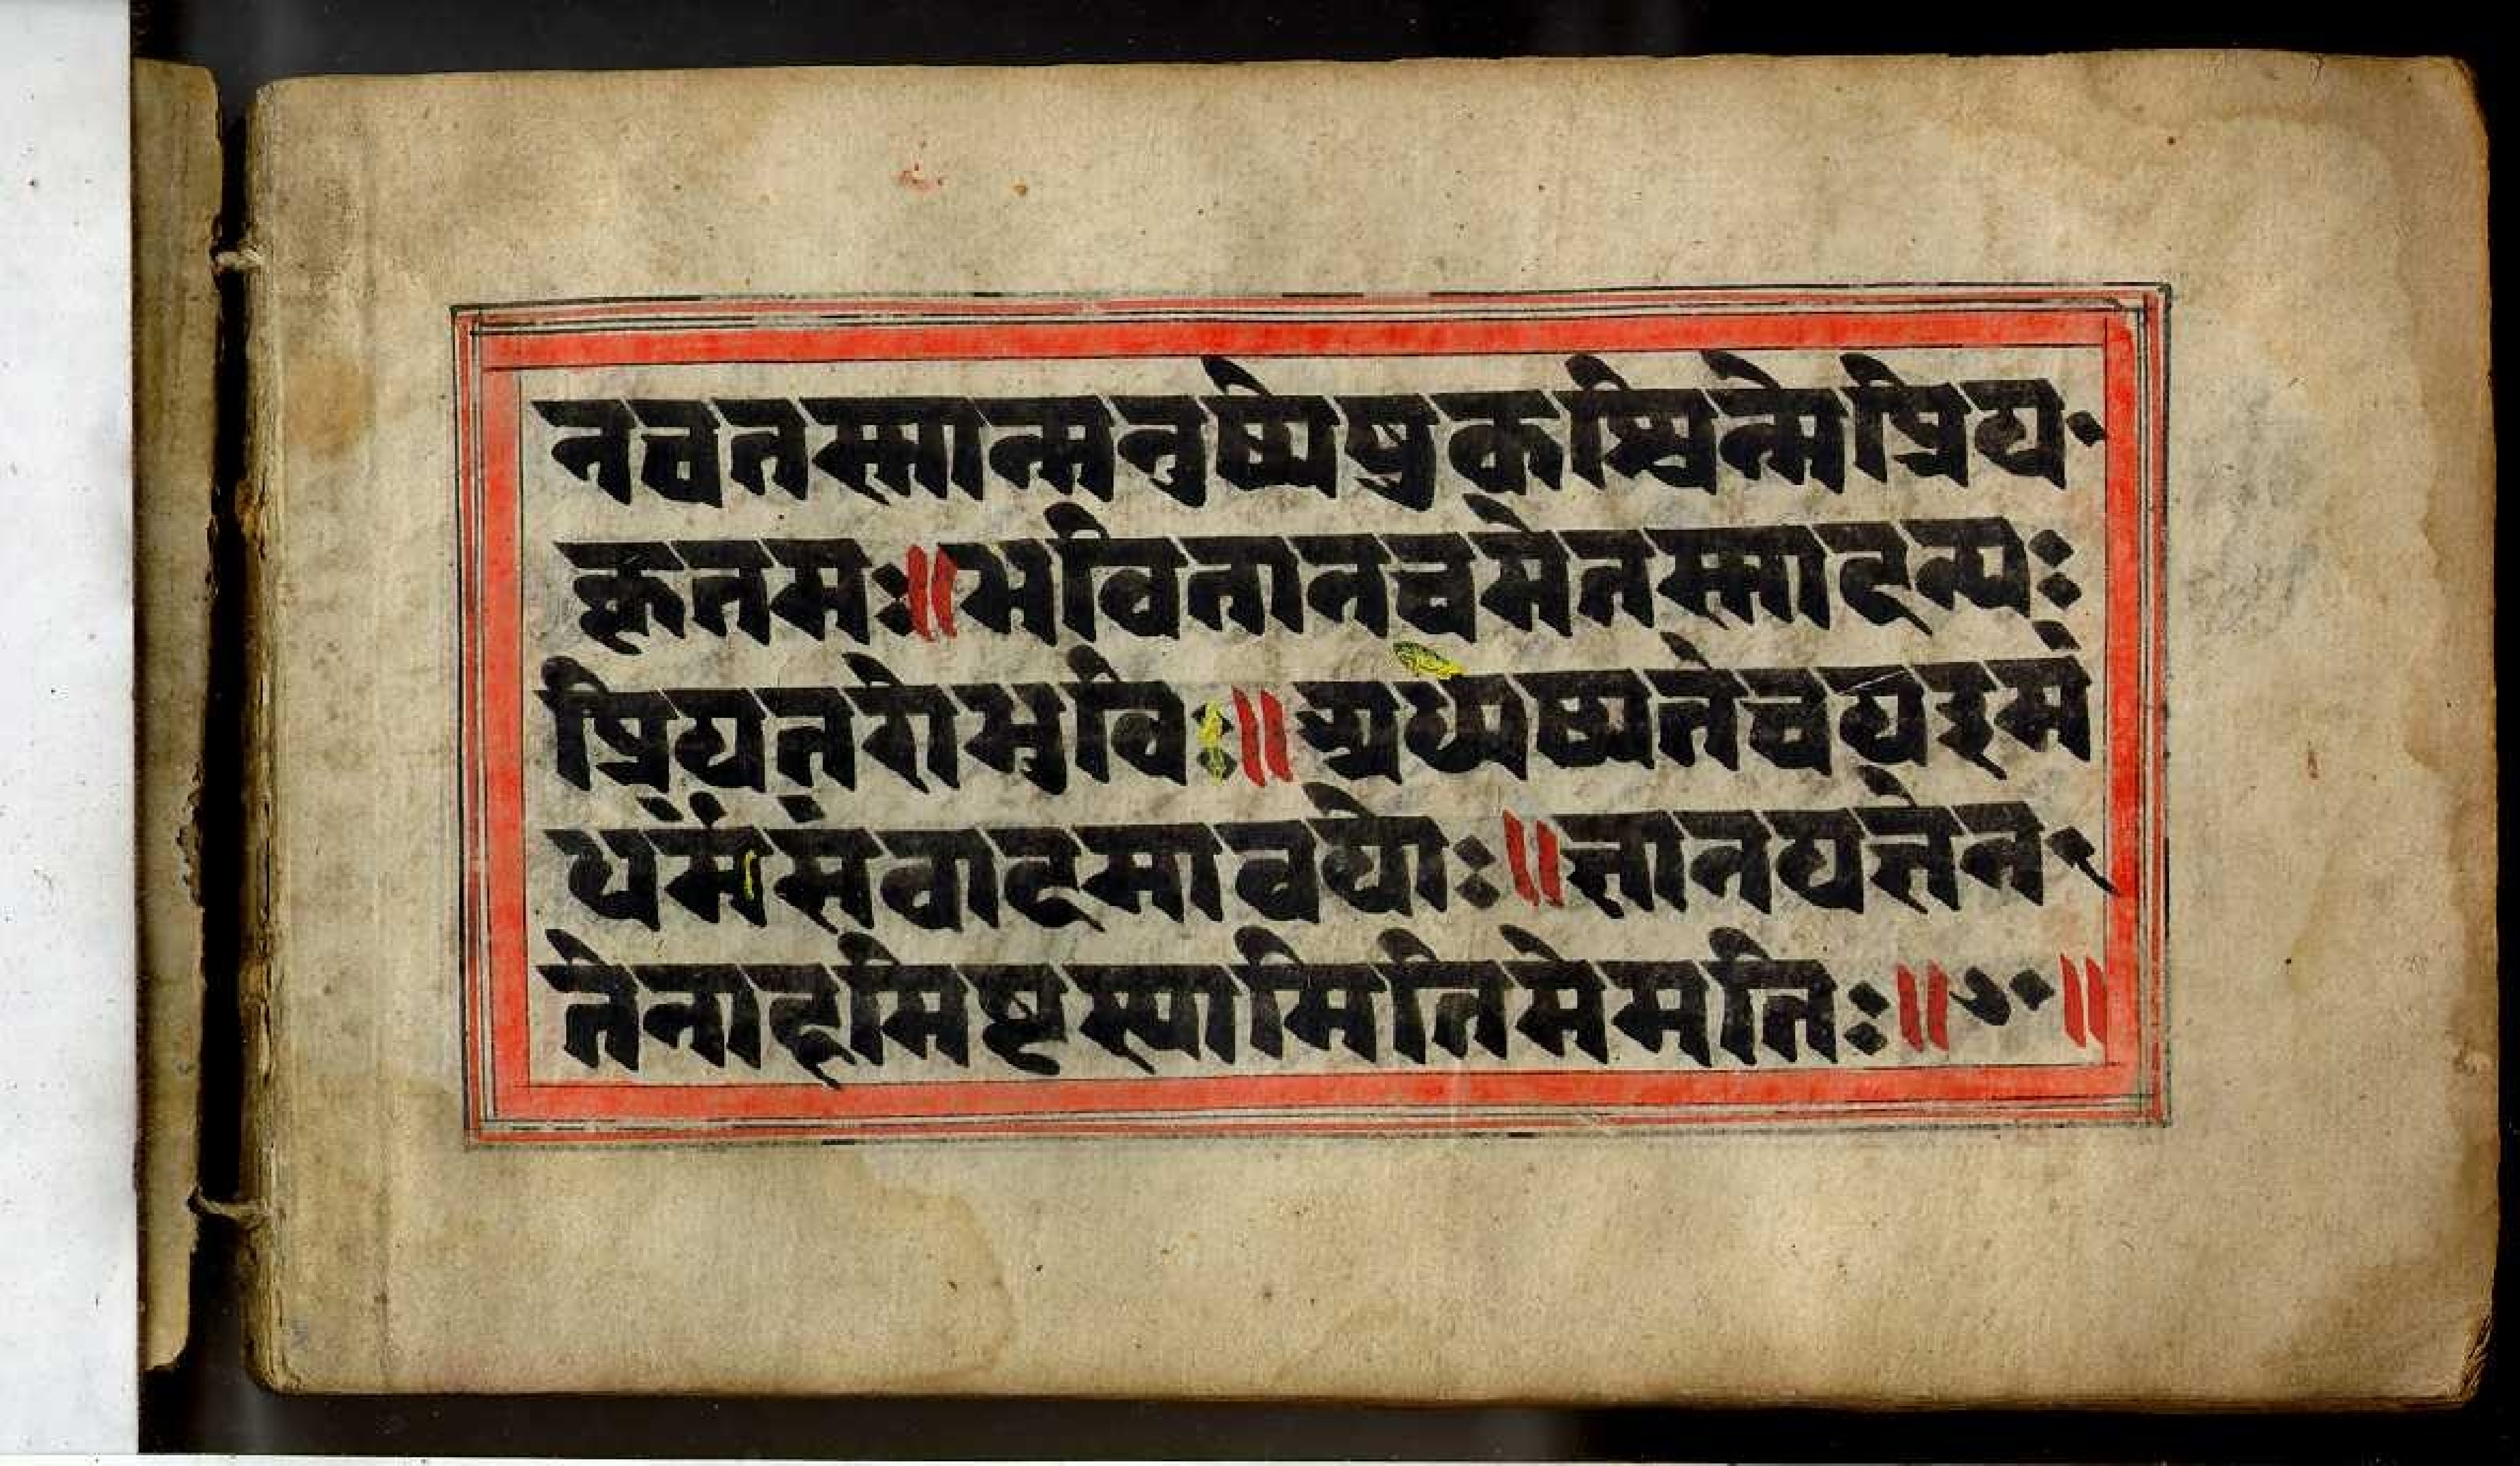 नचतस्मान्मनुष्येषुकश्चिन्मेप्रिय॰
कृतमः॥भवितानचमेतस्मादन्यः
प्रियतरोभुविः॥अध्येष्यतेचयइमं
धर्मंसंवादमावयोः॥ज्ञानयज्ञेन॰
तेनाहमिष्टस्यामितिमेमतिः॥७॰॥